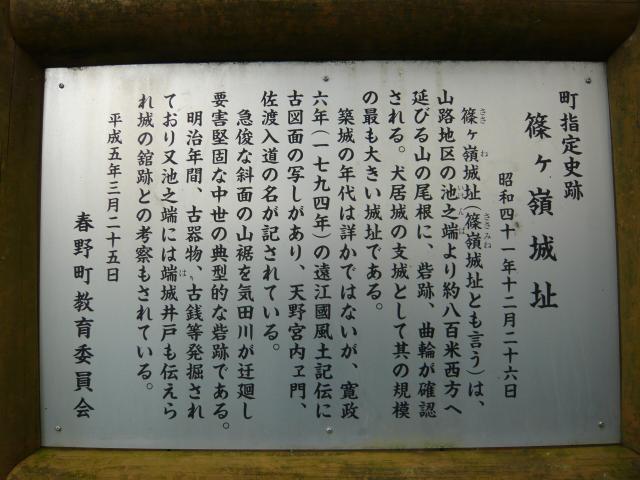 町指定史跡
篠ヶ嶺城址
昭和四十一年十二月二十六日
篠ヶ嶺城址(篠嶺城址とも言う)は、
山路地区の池之端より約八百米西方へ
延びる山の尾根に、砦跡、曲輪が確認
される。犬居城の支城として其の規模
の最も大きい城址である。
築城の年代は詳かではないが、寛政
六年(一七九四年)の遠江國風土記伝に
古図面の写しがあり、天野宮内ヱ門、
佐渡入道の名が記されている。
急俊な斜面の山裾を気田川が迂廻し
要害堅固な中世の典型的な砦跡である。
明治年間、古器物、古銭等発掘され
ており又池之端には端城井戸も伝えら
れ城の舘跡との考察もされている。
平成五年三月二十五日
春野町教育委員会